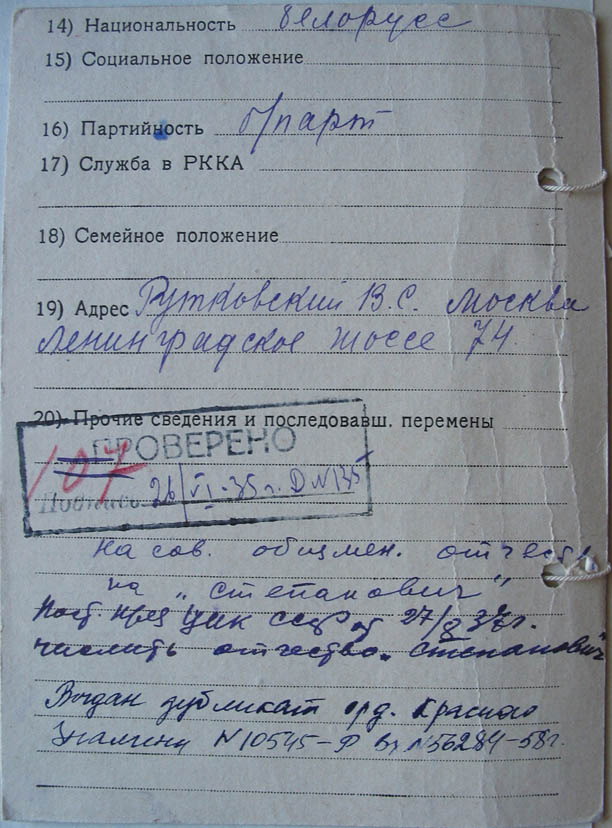 14) Национальность белорусс
15) Социальное положение
16) Партийность б/парт
17) Служба в РККА
18) Семейное положение
19) Адрес Рутковский В.С. Москва
Ленинградское шоссе 74
20) Прочие сведения и последовавш. перемены
ПРОВЕРЕНО
107
26/VI-35 г. Д N 135
на сов. отчеств
на „Степанович"
Пост. През ЦИК СССР от 27/8 37г.
числить отчество „Степанович"
Выдан дубликат орд. Красного
Знамени N10545-Ф вз. N56284-58г.